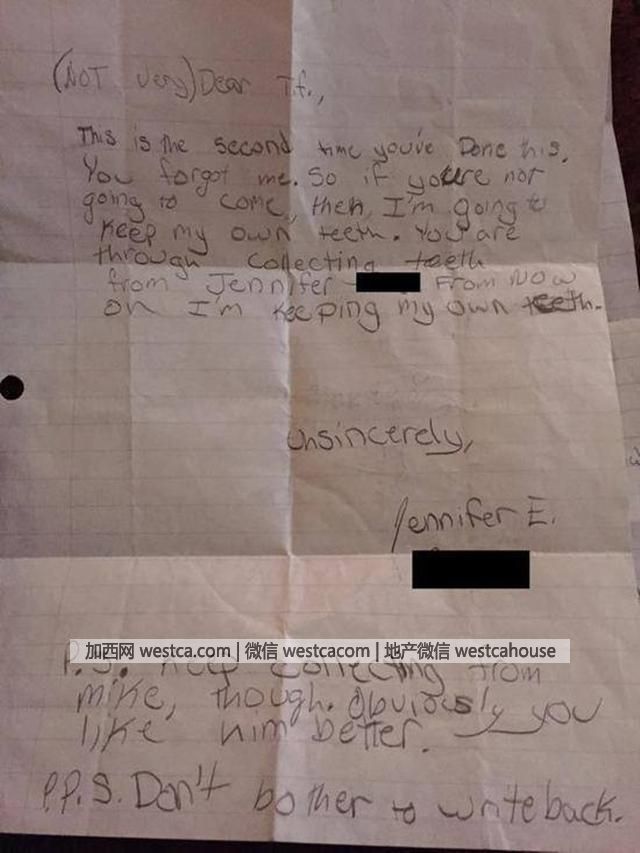 (NOT very) Dear T.f.,
This is the second time you've Done this.
You forgot me. So if you're not
going to come, then, I'm going to
Keep my own teeth. You are
through collecting teeth
from Jennifer From Now
on I'm Keeping my own teeth.
Unsincerely,
Jennifer E.
加西网 westca.com | 微信 westcacom | 地产微信 westcahouse
P.S. Keep collecting from
mike, though. Obviously you
like him better.
P.P.S. Don't bother to write back.